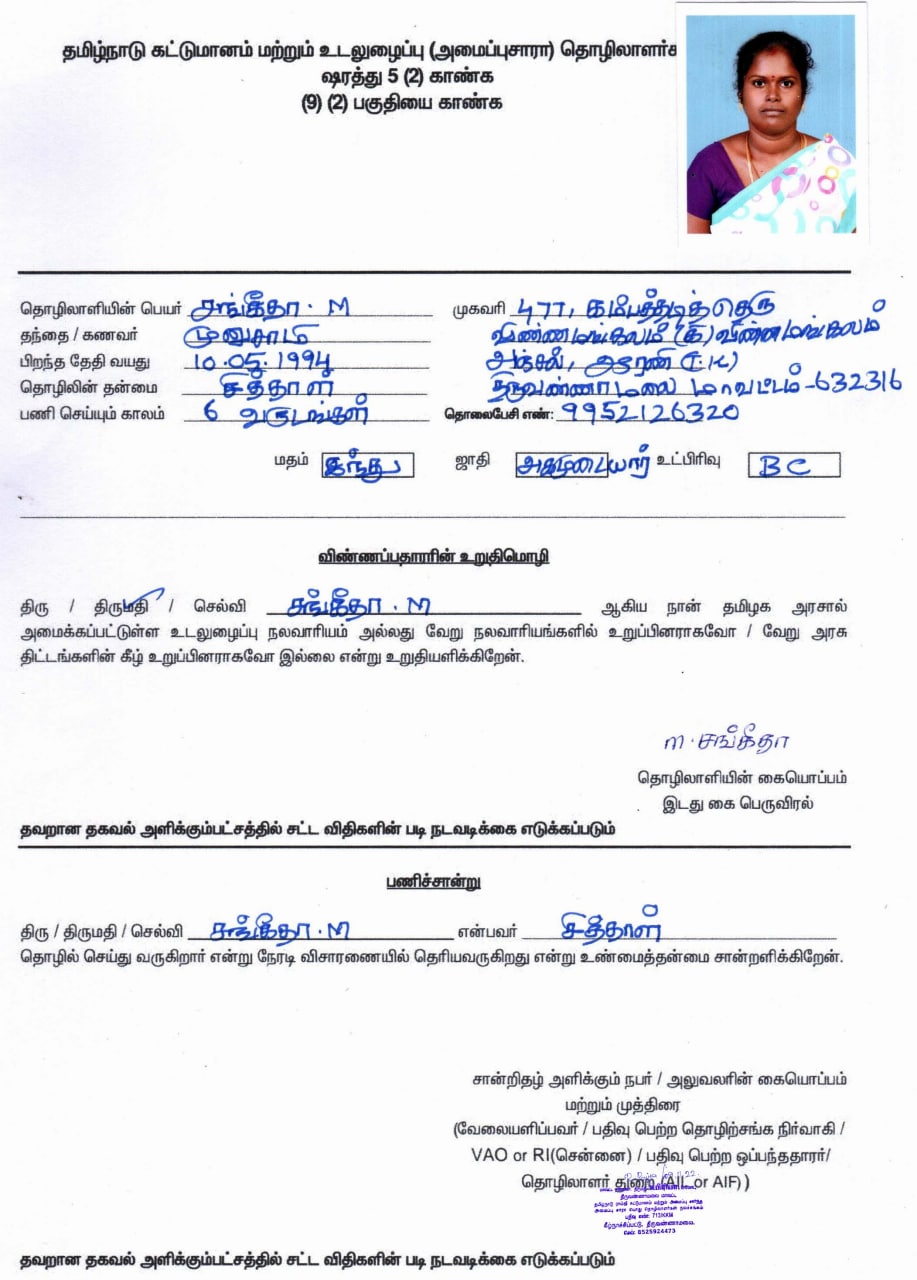 தமிழ்நாடு கட்டுமானம் மற்றும் உடலுழைப்பு (அமைப்புசாரா) தொழிலாளர்க
ஷரத்து 5 (2) காண்க
(9) (2) பகுதியை காண்க
தொழிலாளியின் பெயர் சங்கீதா . M முகவரி 477, கம்பத்தடித் தெரு
தந்தை / கணவர் முனுசாமி விண்ணமங்கலம் (கி) விண்ணமங்கலம்
பிறந்த தேதி வயது 10.05.1994 அஞ்சல், ஆரணி (T.K)
தொழிலின் தன்மை சித்தாள் திருவண்ணாமலை மாவட்டம் -632316
பணி செய்யும் காலம் 6 வருடங்கள் தொலைபேசி எண்: 9952126320
மதம் இந்து ஜாதி அகமுடையார் உட்பிரிவு BC
விண்ணப்பதாரரின் உறுதிமொழி
திரு / திருமதி / செல்வி சங்கீதா . M ஆகிய நான் தமிழக அரசால்
அமைக்கப்பட்டுள்ள உடலுழைப்பு நலவாரியம் அல்லது வேறு நலவாரியங்களில் உறுப்பினராகவோ / வேறு அரசு
திட்டங்களின் கீழ் உறுப்பினராகவோ இல்லை என்று உறுதியளிக்கிறேன்.
M . சங்கீதா
தொழிலாளியின் கையொப்பம்
இடது கை பெருவிரல்
தவறான தகவல் அளிக்கும்பட்சத்தில் சட்ட விதிகளின் படி நடவடிக்கை எடுக்கப்படும்
பணிச்சான்று
திரு / திருமதி / செல்வி சங்கீதா . M என்பவர் சித்தாள்
தொழில் செய்து வருகிறார் என்று நேரடி விசாரணையில் தெரியவருகிறது என்று உண்மைத்தன்மை சான்றளிக்கிறேன்.
சான்றிதழ் அளிக்கும் நபர் / அலுவலரின் கையொப்பம்
மற்றும் முத்திரை
(வேலையளிப்பவர் / பதிவு பெற்ற தொழிற்சங்க நிர்வாகி /
VAO or RI(சென்னை) / பதிவு பெற்ற ஒப்பந்ததாரர்/
தொழிலாளர் துறை (AIL or AIF) )
திருவண்ணாமலை மாவட்ட
பதிவு எண்: 713/KKM
கீழ்நாச்சிப்பட்டு, திருவண்ணாமலை.
செல்: 8525924473
தவறான தகவல் அளிக்கும்பட்சத்தில் சட்ட விதிகளின் படி நடவடிக்கை எடுக்கப்படும்